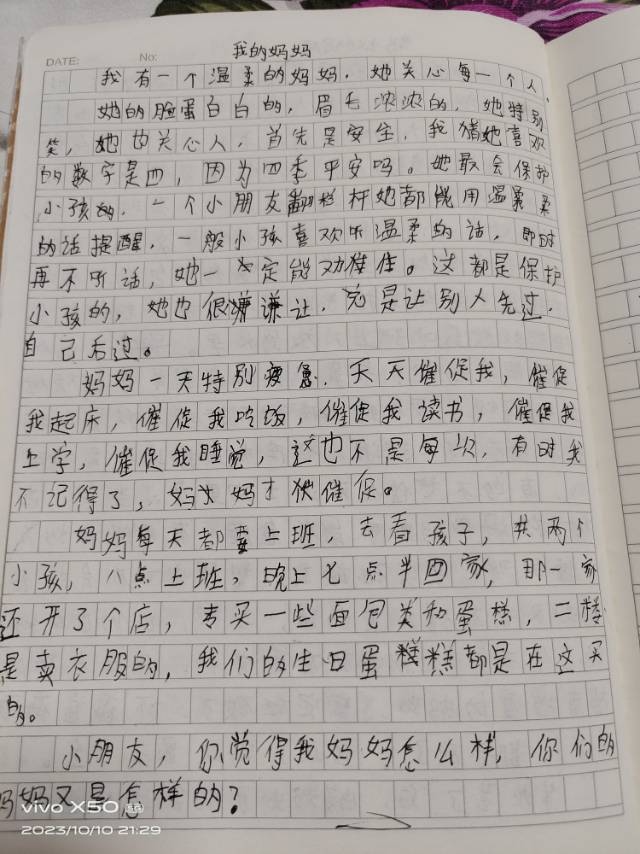 我的妈妈
DATE:
No:
我有一个温柔的妈妈，她关心每一个人。
她的脸蛋白白的，眉毛浓浓的，她特别
笑，她也关心人，首先是安全，我猜她喜欢
的数字是四，因为四季平安吗。她最会保护
小孩的，一个小朋友翻栏杆她都能用温柔
的话提醒，一般小孩喜欢听温柔的话，即时
再不听话，她一定能劝住。这都是保护
小孩的，她也很谦让，总是让别人先过，
自己后过。
妈妈一天特别疲惫，天天催促我，催促
我起床，催促我吃饭，催促我读书，催促我
上学，催促我睡觉，这也不是每次，有时我
不记得了，妈妈才催促。
妈妈每天都要上班，去看孩子，共两个
小孩，八点上班，晚上七点半回家，那一家
还开了个店，专买一些面包类和蛋糕，二楼
是卖衣服的，我们的生日蛋糕都是在这买
的。
小朋友，你觉得我妈妈怎么样，你们的
妈妈又是怎样的？
vivo X50
2023/10/10 21:29